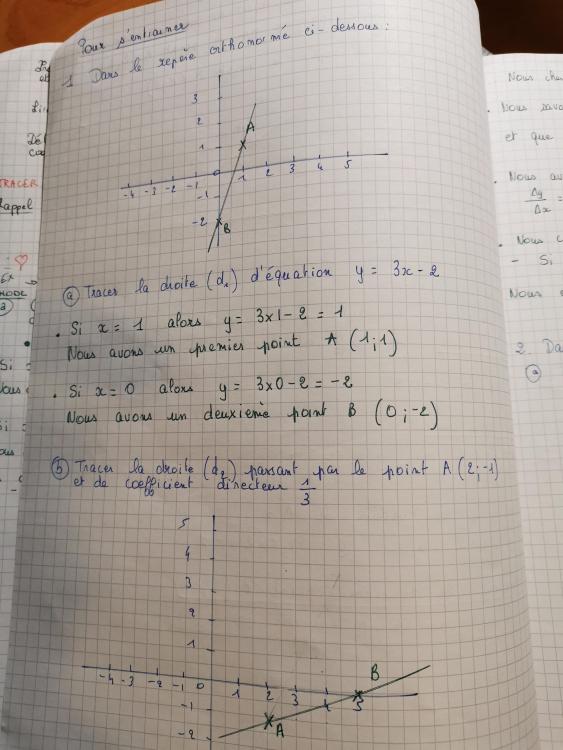 Pour s'entrainer
1 Dans le repère orthonormé ci-dessous :
3
2
A
1
-4 -3 -2 -1 0 1 2 3 4 5
-1
-2
B
ⓐ Tracer la droite (d₁) d'équation y = 3x - 2
. Si x = 1 alors y = 3x1 - 2 = 1
Nous avons un premier point A (1;1)
. Si x = 0 alors y = 3x0 - 2 = -2
Nous avons un deuxième point B (0;-2)
ⓑ Tracer la droite (d₂) passant par le point A (2;-1)
et de coefficient directeur 1/3
5
4
3
2
1
B
-4 -3 -2 -1 0 1 2 3 4 5
-1
A
-2
TRACER
Rappel
Ex
Si =
Nous
Nous savo
et que
. Nous av
Δy
Δx =
. Nous
- Si
Nous
2. Da
ⓐ